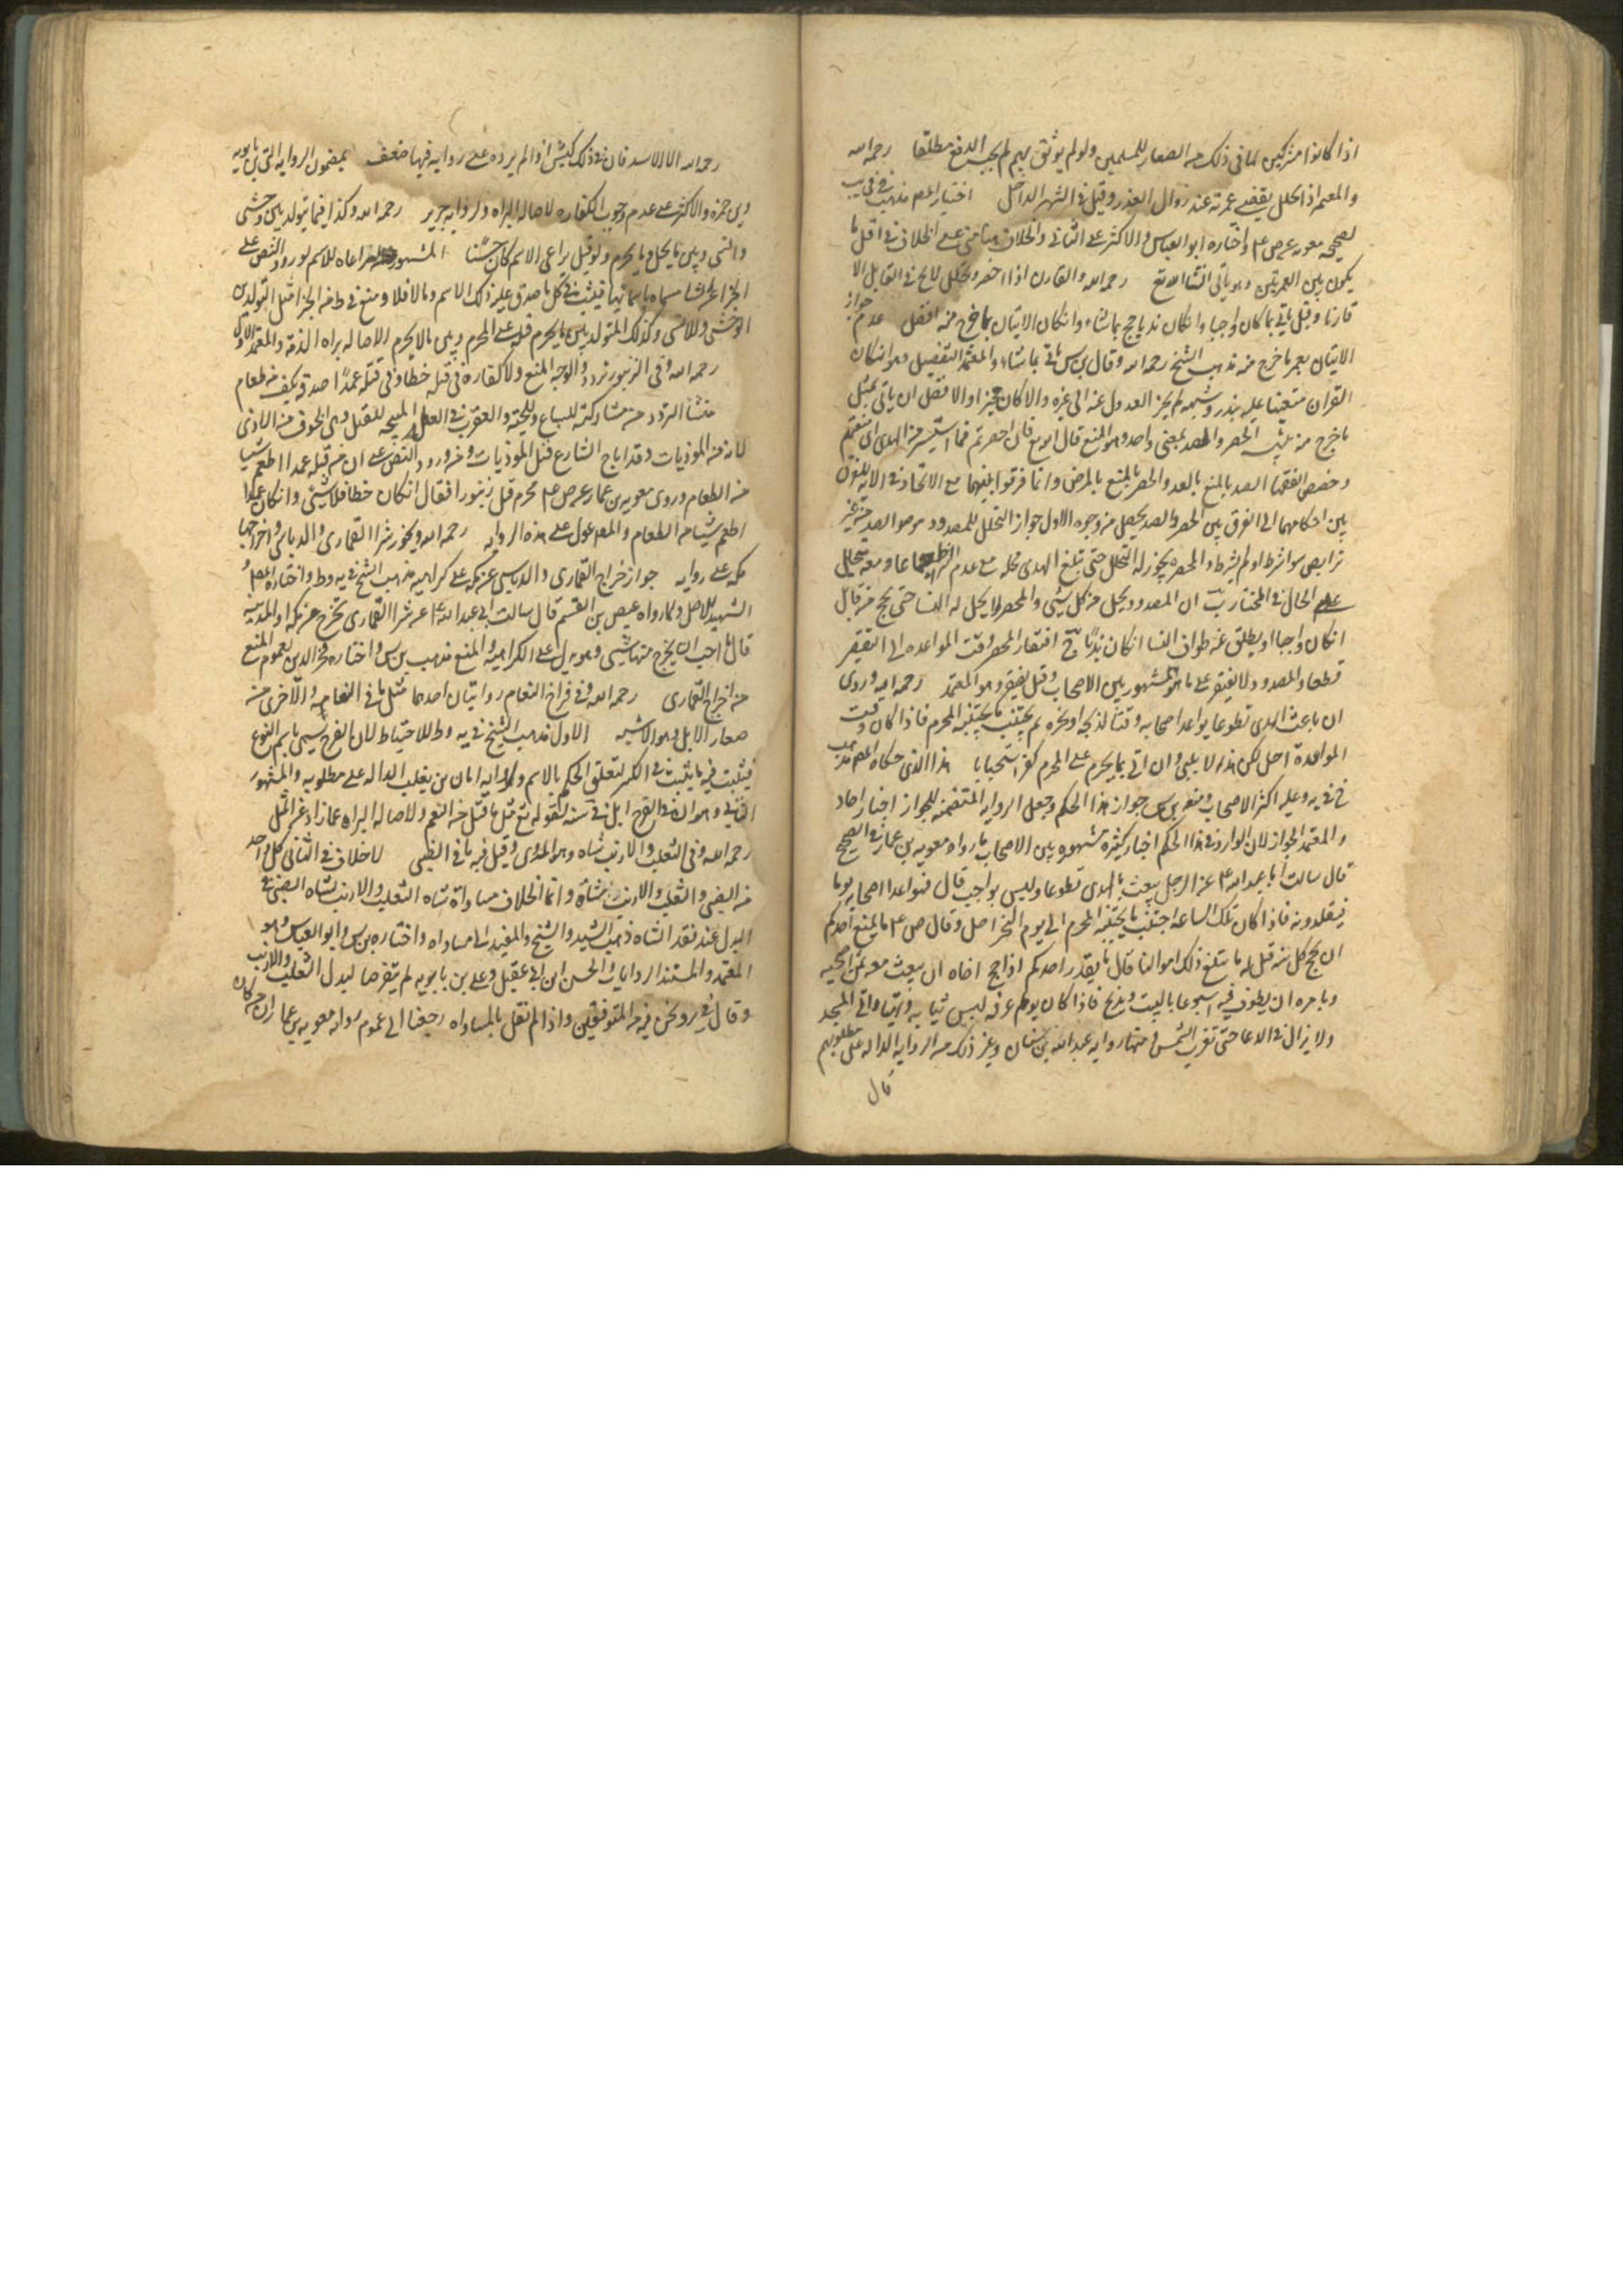 اذا كانوا مشركين لما في ذلك من الصغار للمسلمين ولو لم يوثق بهم لم يجب الدفع مطلقا رحمه الله
والمعتمر اذا تحلل يقضى عمرته عند زوال العذر وقيل في الشهر الداخل اختيار المص مذهب
لصحيحه معويه عن ص ع واختاره ابو العباس والاكثر على الثاني والخلاف مبنا على الخلاف في اقل ما
يكون بين العمرتين وسياتي انشا الله تع رحمه الله والقارن اذا احصر وتحلل لا يحج في القابل الا
قارنا وقيل ياتي بما كان واجبا وانكان ندبا حج بما شاء وانكان الاتيان بما خرج منه افضل عدم جواز
الاتيان بغير ما خرج منه مذهب الشيخ رحمه الله وقال بن س ياتي بما شاء والمعتمد التفصيل وهو انكان
القران متعينا عليه بنذر وشبهه لم يجز العدول عنه الى غيره والا كان مجيزا والافضل ان ياتي بمثل
ما خرج منه الحصر والصد بمعنى واحد وهو المنع قال الله تع فان احصرتم فما استيسر من الهدى اى منعتم
وخصص الفقها الصد بالمنع بالعدو والحصر بالمنع بالمرض وانما فرقوا بينهما مع الاتحاد في الايه
بين احكامهما الى الفرق بين الحصر والصد يحصل من وجوه الاول جواز التحلل للمصدود من موضع الصد من غير
تربص سوا شرط او لم يشرط والمحصر لا يجوز له التحلل حتى يبلغ الهدى محله مع عدم الشرط
الحال في المختار ب ان المصدود يحل من كل شيء والمحصر لا يحل له النسا حتى يحج من قابل
انكان واجبا او يطاف عنه طواف النسا انكان ندبا ج افتقار المحصر وقت المواعده الى التقصير
قطعا والمصدود لا يفتقر على ما هو المشهور بين الاصحاب وقيل يفتقر وهو المعتمد رحمه الله وروى
ان باعث الهدى تطوعا يواعد اصحابه وقتا لذبحه او نحره ثم يجتنب ما يجتنبه المحرم فاذا كان وقت
المواعدة احل لكن هذا لا يلبى وان اتى بما يحرم على المحرم كفر استحبابا هذا الذى حكاه المص مذهب
في يه وعليه اكثر الاصحاب ومنع بن س جواز هذا الحكم وجعل الروايه المتضمنه للجواز اخبار احاد
والمعتمد الجواز لان الوارد في هذا الحكم اخبار كثيره مشهوره بين الاصحاب ما رواه معويه بن عمار في الصحيح
قال سالت ابا عبد الله ع عن الرجل يبعث بالهدى تطوعا وليس بواجب قال فيواعد اصحابه يوما
فيقلدونه فاذا كان تلك الساعه اجتنب ما يجتنبه المحرم الى يوم النحر احل وقال ص ع ما يمنع احدكم
ان يحج كل سنه قيل له ما يبلغ ذلك اموالنا قال ما يقدر احدكم اذا حج اخاه ان يبعث معه ثمن اضحيه
ويامره ان يطوف عنه اسبوعا بالبيت ويذبح فاذا كان يوم عرفه لبس ثيابه وتهيا واتى المسجد
ولا يزال في الدعا حتى تغرب الشمس ومنها روايه عبد الله بن سنان وغير ذلك من الروايه الداله على مطلوبهم
قال
رحمه الله الا الاسد فان في ذلك كبش اذا لم يرده على روايه فيها ضعف بمضمون الروايه افتى بن بابويه
وبن حمزه والاكثر على عدم وجوب الكفاره لاصاله البراه ولروايه حريز رحمه الله وكذا فيما يتولد بين وحشى
وانسى وبين ما يحل وما يحرم ولو قيل يراعى الاسم كان حسنا المشهور مراعاه الاسم لورود النص على
مسماه باسمائها فيثبت في كل ما صدق عليه ذلك الاسم وما لا فلا
الوحشى والانسى وكذلك المتولد بين ما يحرم قتله على المحرم وبين ما لا يحرم لاصاله براه الذمه والمعتمد الاول
رحمه الله وفى الزنبور تردد والوجه المنع ولا كفاره في قتله خطا وفى قتله عمدا صدقه بكف من طعام
منشا التردد من مشاركته للسباع وللحيه والعقرب في العله المبيحه للقتل وهى الخوف من الاذى
لانه من الموذيات وقد اباح الشارع قتل الموذيات ومن ورود النص على ان من قتله عمدا اطعم شيا
من الطعام وروى معويه بن عمار عن ص ع محرم قتل زنبورا فقال انكان خطا فلا شيئ وانكان عمدا
اطعم شيئا من الطعام والمص عول على هذه الروايه رحمه الله ويجوز شرا القمارى والدباسى واخراجها
مكه على روايه جواز اخراج القمارى والدباسى عن مكه على كراهيه مذهب الشيخ في يه وط واختاره المص و
الشهيد للاصل ولما رواه عيص بن القسم قال سالت ابى عبد الله ع عن شرا القمارى تخرج عن مكه او المدينه
قال ما احب ان يخرج منها شيئ وهو يدل على الكراهيه والمنع مذهب بن س واختاره فخر الدين لعموم المنع
من اخراج القمارى رحمه الله وفى فراخ النعام روايتان احدهما مثل ما في النعام والاخرى من
صغار الابل وهو الاشبه الاول مذهب الشيخ في يه وط للاحتياط لان الفرخ يسمى باسم النوع
فيثبت فيه ما يثبت في الكبر لتعلق الحكم بالاسم ولروايه ابان بن تغلب الداله على مطلوبه والمشهور
الثاني وهو ان في الفرخ ابل في سنه لقوله تع مثل ما قتل من النعم ولاصاله البراه عما زاد عن المثل
رحمه الله وفى الثعلب والارنب شاه وهو المروى وقيل فيه ما في الظبى لا خلاف في ان في كل واحد
من الضبى والثعلب والارنب شاة وانما الخلاف مساواة شاه الثعلب والارنب لشاه الضبى في
البدل عند فقد الشاه ذهب السيد والشيخ والمفيد الى مساواه واختاره بن س وابو العباس وهو
المعتمد والمستند الروايات والحسن ابن ابى عقيل وعلى بن بابويه لم يتعرضا لبدل الثعلب والارنب
وقال ونحن فيه من المتوقفين واذا لم نقل بالمساواه رجعنا الى عموم روايه معويه بن عمار ان من كان